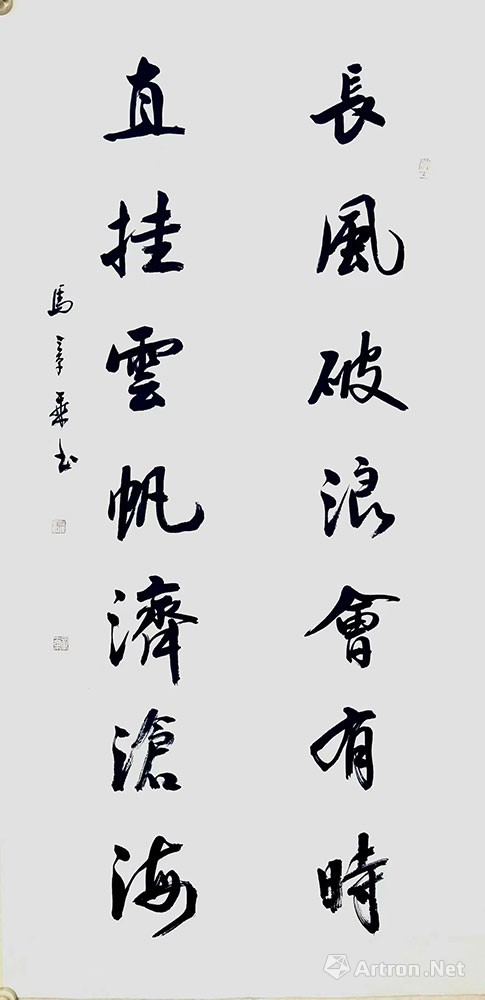 長風破浪會有時
直挂雲帆濟滄海
馬章乘書
Artron.Net